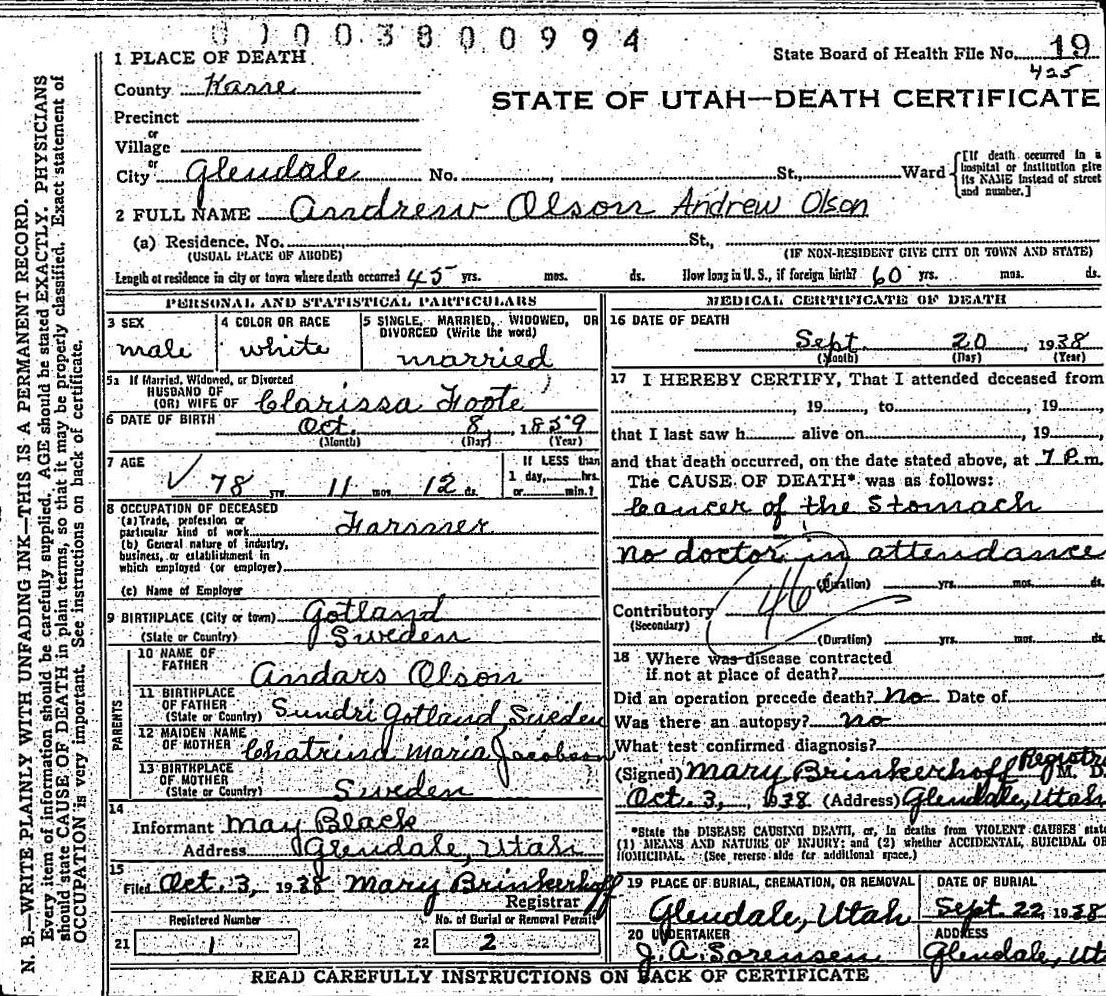 0 1 0 0 3 8 0 0 9 9 4
State Board of Health File No. 19
425
1 PLACE OF DEATH
County Kane
STATE OF UTAH—DEATH CERTIFICATE
Precinct
or
Village
or
City Glendale No. , St., Ward [If death occurred in a hospital or institution give its NAME instead of street and number.]
2 FULL NAME Andrew Olson Andrew Olson
(a) Residence. No. St.,
(USUAL PLACE OF ABODE) (IF NON-RESIDENT GIVE CITY OR TOWN AND STATE)
Length of residence in city or town where death occurred 45 yrs. mos. ds. How long in U. S., if foreign birth? 60 yrs. mos. ds.
PERSONAL AND STATISTICAL PARTICULARS
3 SEX
male
4 COLOR OR RACE
white
5 SINGLE, MARRIED, WIDOWED, OR
DIVORCED (Write the word)
married
5a If Married, Widowed, or Divorced
HUSBAND OF
(OR) WIFE OF Clarissa Foote
6 DATE OF BIRTH Oct. 8, 1859
(Month) (Day) (Year)
7 AGE
78 yrs. 11 mos. 12 ds.
If LESS than
1 day, hrs.
or min.?
8 OCCUPATION OF DECEASED
(a) Trade, profession or
particular kind of work Farmer
(b) General nature of industry,
business, or establishment in
which employed (or employer)
(c) Name of Employer
9 BIRTHPLACE (City or town) Gotland
(State or Country) Sweden
PARENTS
10 NAME OF
FATHER Andars Olson
11 BIRTHPLACE
OF FATHER
(State or Country) Sundri Gotland, Sweden
12 MAIDEN NAME
OF MOTHER Chatrina Maria Jacobson
13 BIRTHPLACE
OF MOTHER
(State or Country) Sweden
14
Informant May Black
Address Glendale, Utah
15
Filed Oct. 3, 1938 Mary Brinkerhoff
Registrar
Registered Number
21 1
No. of Burial or Removal Permit
22 2
MEDICAL CERTIFICATE OF DEATH
16 DATE OF DEATH
Sept. 20 1938
(Month) (Day) (Year)
17 I HEREBY CERTIFY, That I attended deceased from
, 19 , to , 19 ,
that I last saw h alive on , 19
and that death occurred, on the date stated above, at 7 P.m.
The CAUSE OF DEATH* was as follows:
Cancer of the Stomach
no doctor in attendance
(Duration) yrs. mos. ds.
46
Contributory
(Secondary)
(Duration) yrs. mos. ds.
18 Where was disease contracted
if not at place of death?
Did an operation precede death? No Date of
Was there an autopsy? no
What test confirmed diagnosis?
(Signed) Mary Brinkerhoff Registrar M. D.
Oct. 3, 1938 (Address) Glendale, Utah
*State the DISEASE CAUSING DEATH, or, in deaths from VIOLENT CAUSES state
(1) MEANS AND NATURE OF INJURY; and (2) whether ACCIDENTAL, SUICIDAL OR
HOMICIDAL. (See reverse side for additional space.)
19 PLACE OF BURIAL, CREMATION, OR REMOVAL
Glendale, Utah
DATE OF BURIAL
Sept. 22, 1938
20 UNDERTAKER
J. A. Sorensen
ADDRESS
Glendale, Uta
READ CAREFULLY INSTRUCTIONS ON BACK OF CERTIFICATE
N. B.—WRITE PLAINLY WITH UNFADING INK—THIS IS A PERMANENT RECORD.
Every item of information should be carefully supplied. AGE should be stated EXACTLY. PHYSICIANS
should state CAUSE OF DEATH in plain terms, so that it may be properly classified. Exact statement of
OCCUPATION is very important. See instructions on back of certificate.